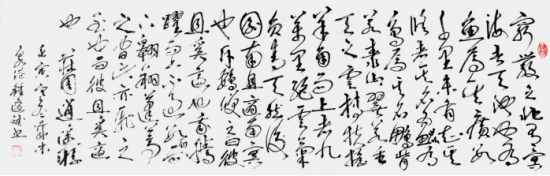 窮發之北有冥
海者天池也有
魚焉其廣數
千里未有知其
修者其名為鯤有
鳥焉其名為鵬背
若泰山翼若垂
天之雲摶扶搖
羊角而上者九
萬里絕雲氣
負青天然後
圖南且適南冥
也斥鴳笑之曰彼
且奚適也我騰
躍而上不過數仞而
下翱翔蓬蒿
之間此亦飛之
至也而彼且奚適
也 莊周逍遙游
壬寅